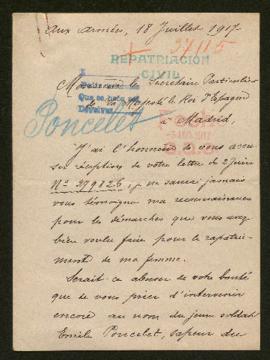 Aux Armées, 18 Juillet 1917
54115
REPATRIACIÓN
CIVIL
Monsieur le Secrétaire Particulier
de sa Majesté le Roi d'Espagne
Poncelet
à Madrid,
J'ai l'honneur de vous accu-
ser réception de votre lettre du 2 Juin
Nº 279826, je ne saurai jamais
vous témoigner ma reconnaissance
pour les démarches que vous avez
bien voulu faire pour le rapatrie-
ment de ma femme.
Serait-ce abuser de votre bonté
que de vous prier d'intervenir
encore au nom du jeune soldat
Emile Poncelet, sapeur au